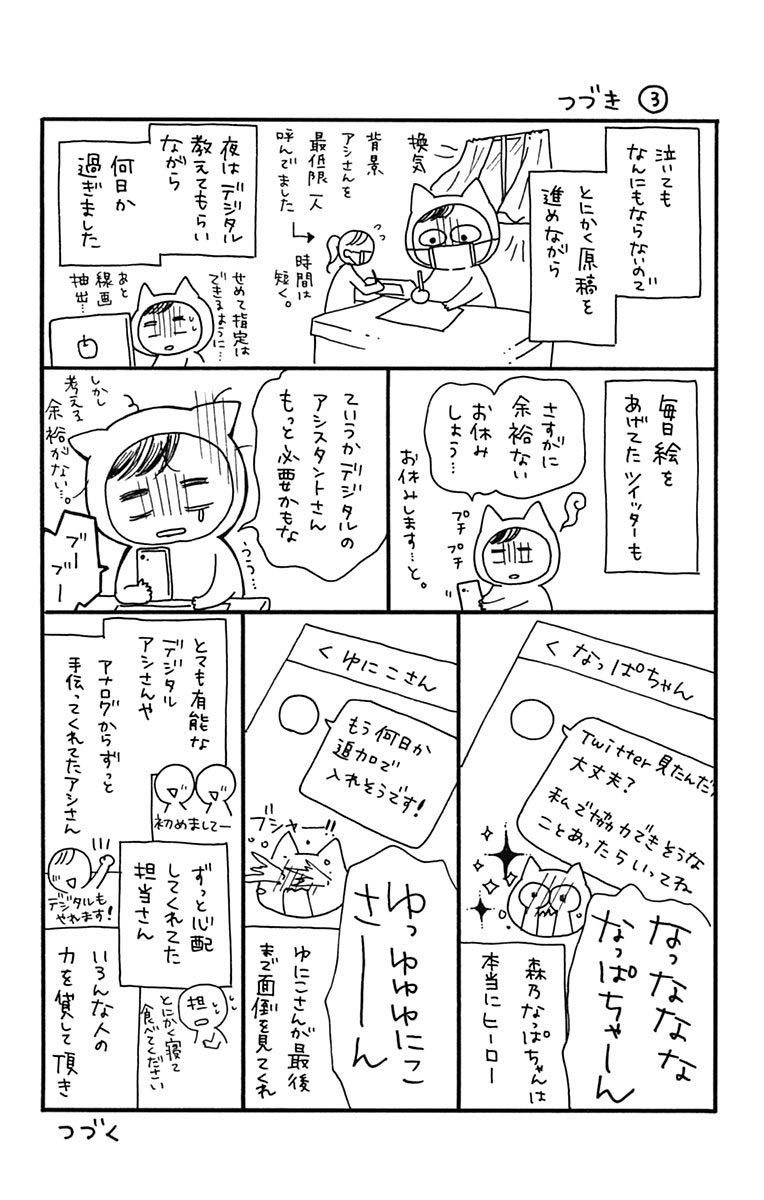 つづき ③
泣いても
なんにもならないので
とにかく原稿を
進めながら
換気
背景
アシさんを
最低限一人
呼んでました
→時間は
短く。
夜はデジタル
教えてもらい
ながら
何日か
過ぎました
せめて指定は
できるように…
あと
線画
抽出…
毎日絵を
あげてたツイッターも
さすがに
余裕ない
お休み
しよう…
プチ
プチ
お休みします…と。
ていうかデジタルの
アシスタントさん
もっと必要かもな
うう…
しかし
考える
余裕がない…。
ブー
ブー
< なっぱちゃん
Twitter見たんだ
大丈夫?
私で協力できそうな
ことあったらいってね
なっななな
なっぱちゃーん
森乃なっぱちゃんは
本当にヒーロー
< ゆにこさん
もう何日か
追加で
入れそうです!
ブシャー!!
ゆっゅゅにこ
さーーん
ゆにこさんが最後
まで面倒を見てくれ
とても有能な
デジタル
アシさんや
初めましてー
アナログからずっと
手伝ってくれてたアシさん
デジタルも
やれます!
ずっと心配
してくれてた
担当さん
担
とにかく寝て
食べてください
いろんな人の
力を貸して頂き
つづく